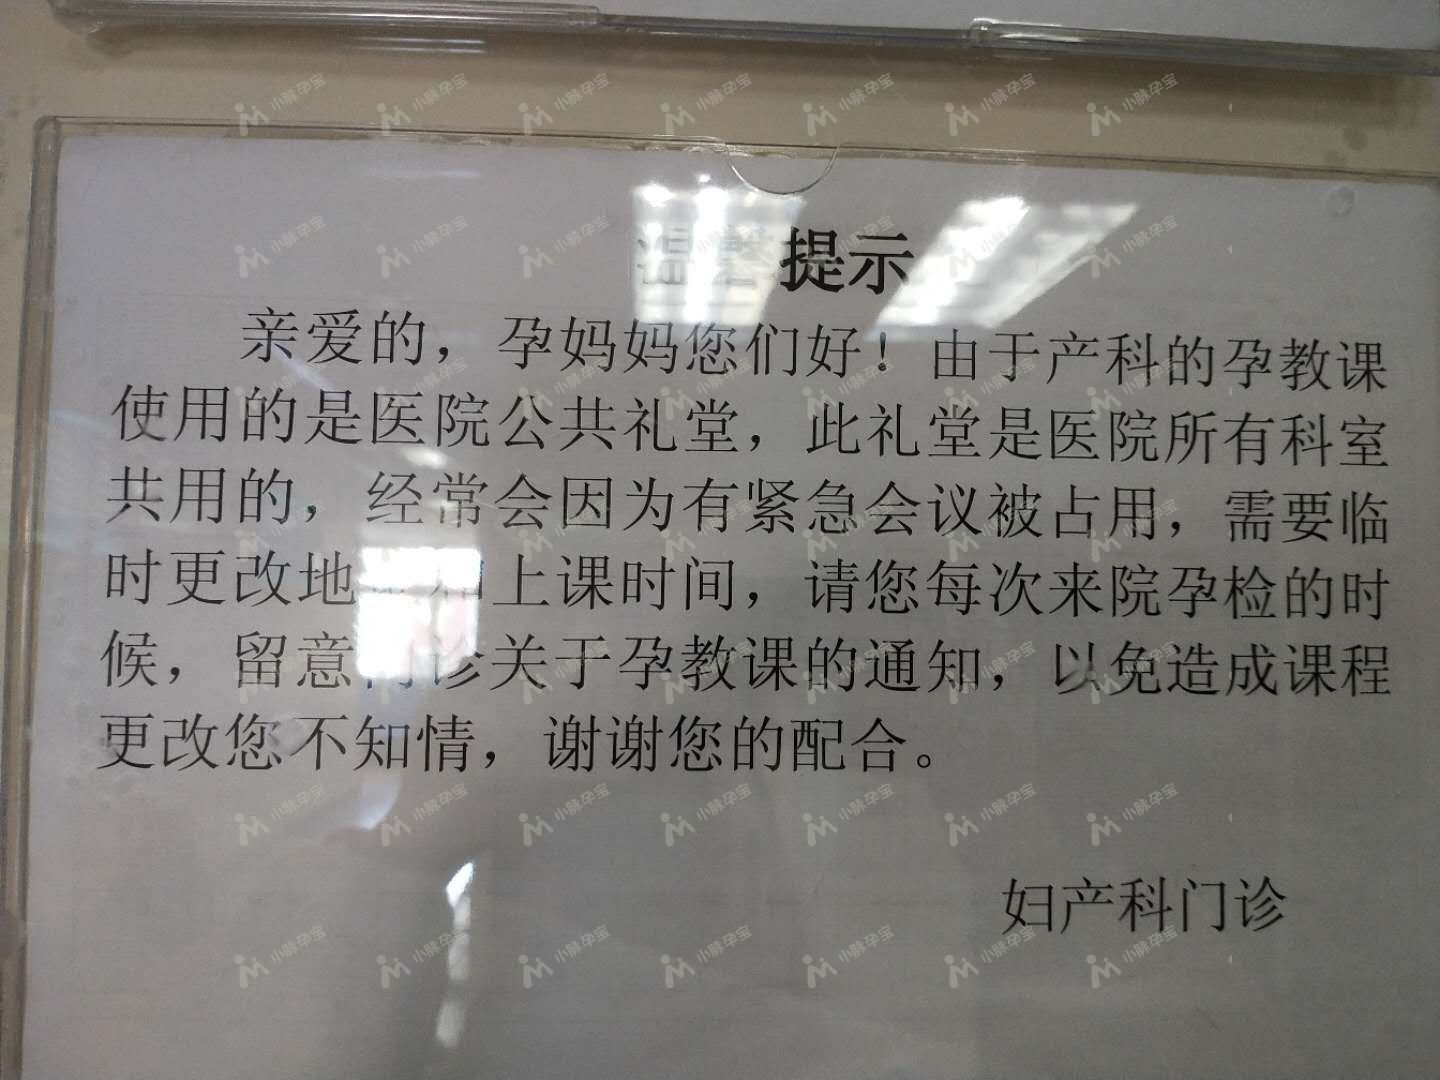 温馨提示
亲爱的，孕妈妈您们好！由于产科的孕教课
使用的是医院公共礼堂，此礼堂是医院所有科室
共用的，经常会因为有紧急会议被占用，需要临
时更改地 和上课时间，请您每次来院孕检的时
候，留意门诊关于孕教课的通知，以免造成课程
更改您不知情，谢谢您的配合。
妇产科门诊
小脉孕宝